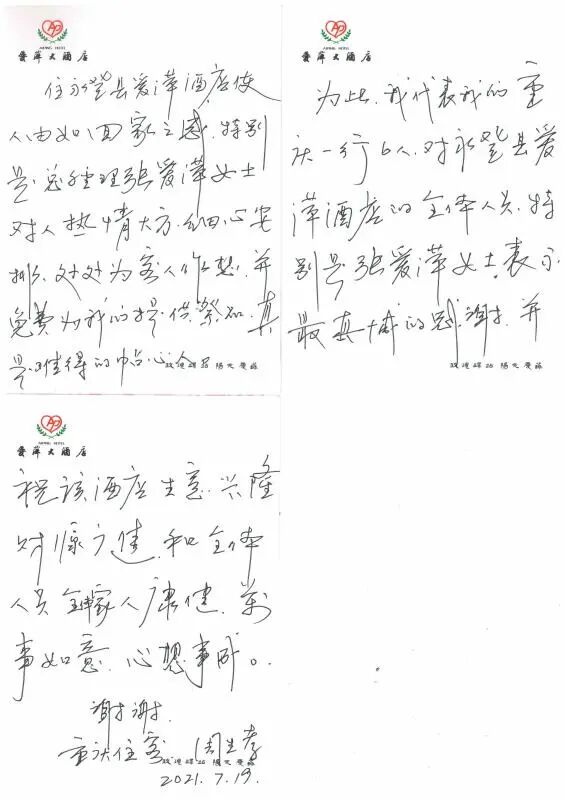 AIPING HOTEL
爱萍大酒店
住永登县爱萍酒店使
人由如回家之感.特别
是.总经理张爱萍女士
对人热情大方.细心安
排.处处为客人作想.并
免费为我们提供祭品.真
是难得的中心人
AIPING HOTEL
爱萍大酒店
为此.我代表我们重
庆一行6人.对永登县爱
萍酒店的全体人员.特
别是张爱萍女士.表示
最真诚的感谢.并
AIPING HOTEL
爱萍大酒店
祝该酒店生意.兴隆
财源广进.和全体
人员全家人康健.万
事如意.心想事成。
谢谢.
重庆住客 周生孝
2021.7.19.